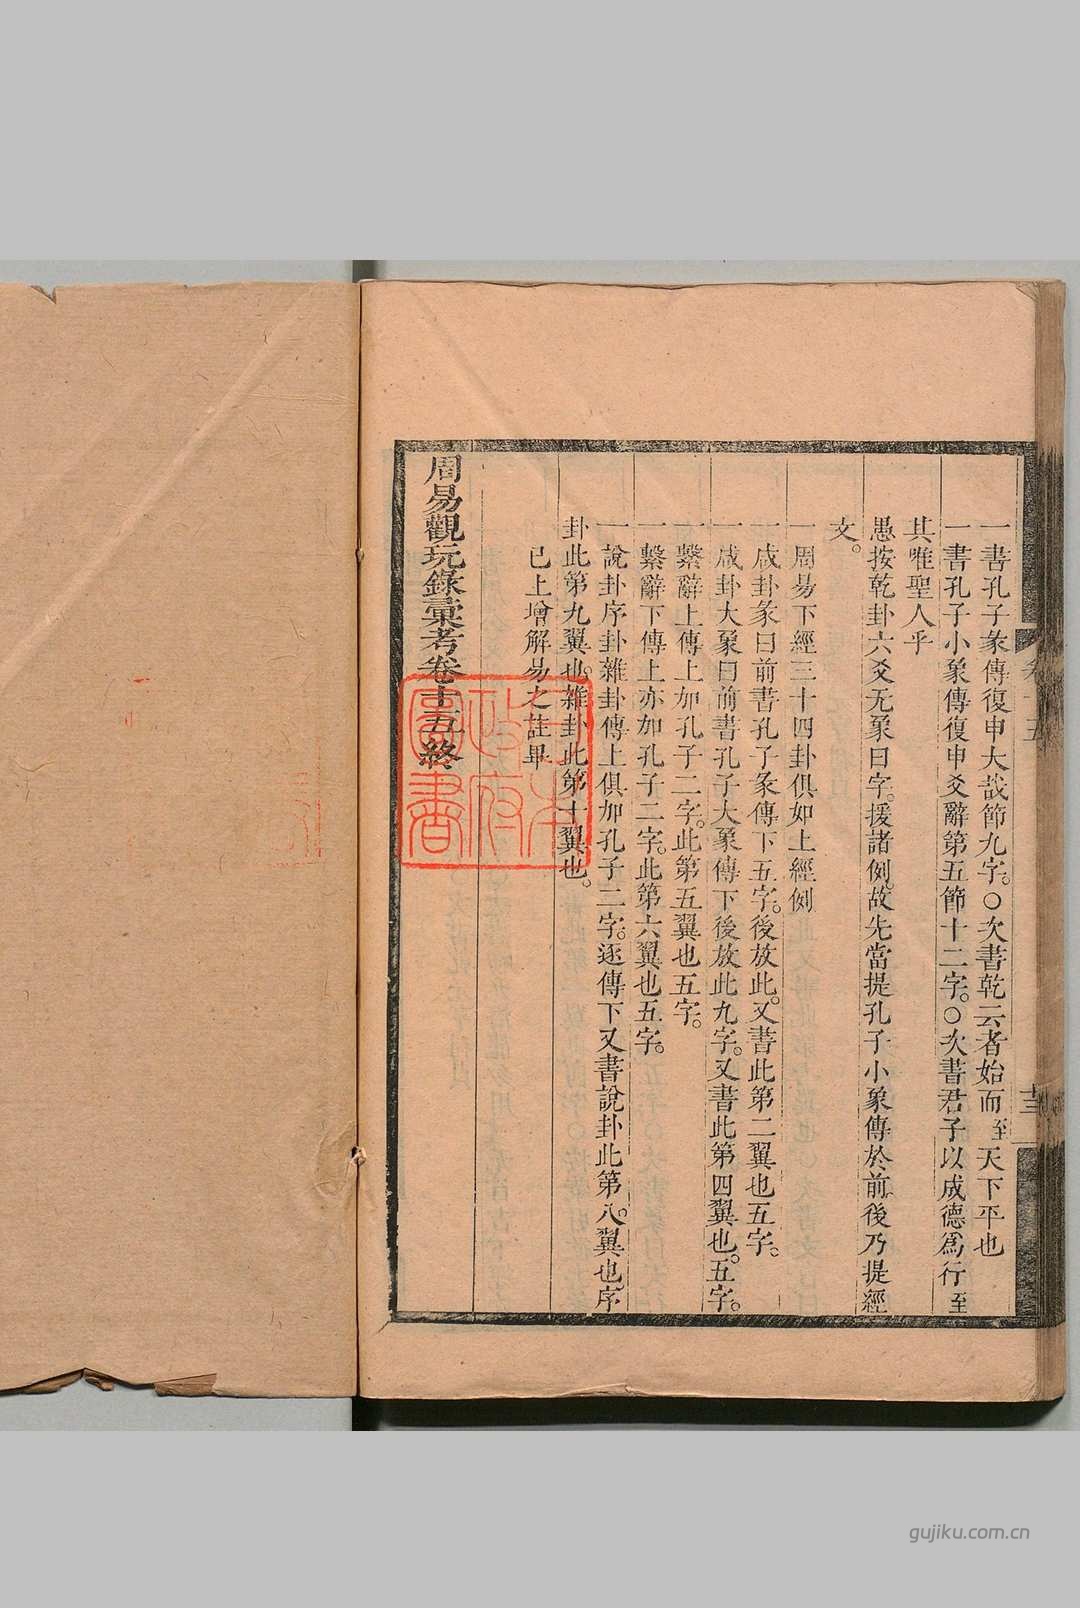 一書孔子彖傳復申大哉節九字。○次書乾云者始而至天下平也
一書孔子小象傳復申爻辭第五節十二字。○次書君子以成德爲行至
其唯聖人乎
愚按乾卦六爻无象曰字。援諸例。故先當提孔子小象傳於前。後乃提經
文。
一周易下經三十四卦俱如上經例
一咸卦彖曰前書孔子彖傳下五字。後放此。又書此第二翼也五字。
一咸卦大象曰前書孔子大象傳下後放此九字。又書此第四翼也。五字。
一繫辭上傳上加孔子二字。此第五翼也五字。
一繫辭下傳上亦加孔子二字。此第六翼也五字。
一說卦序卦雜卦傳上俱加孔子二字。逐傳下又書說卦此第八翼也序
卦此第九翼也。雜卦此第十翼也。
已上增解易之註畢
周易觀玩錄彙考卷十五終
卷十五
十三
圖書
gujiku.com.cn